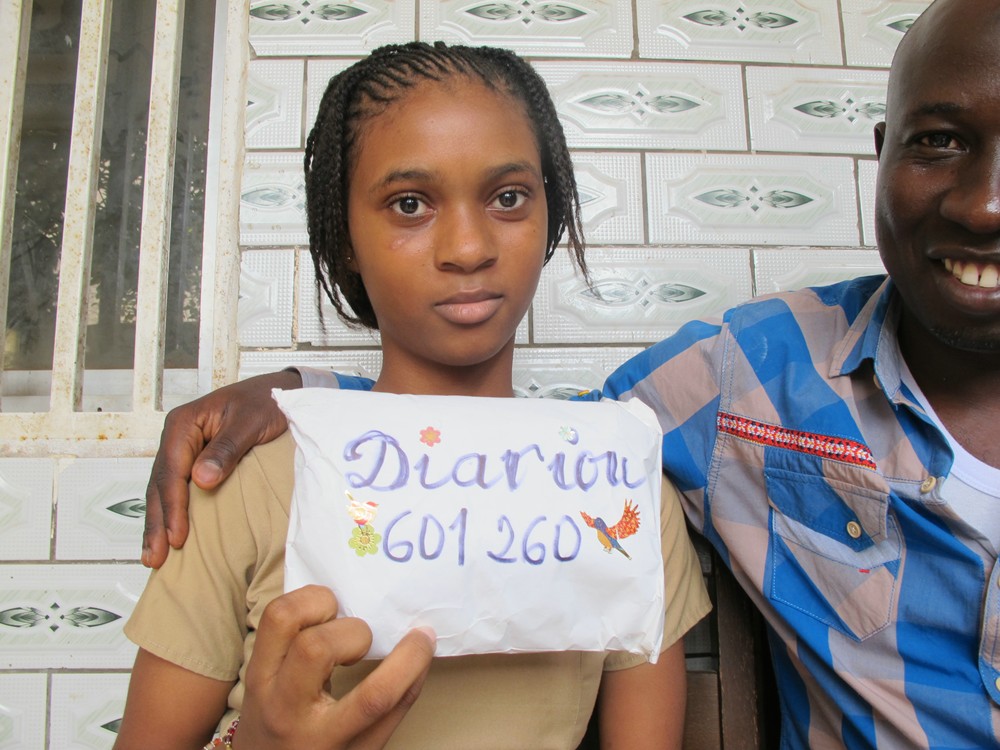 Diariou
601 260